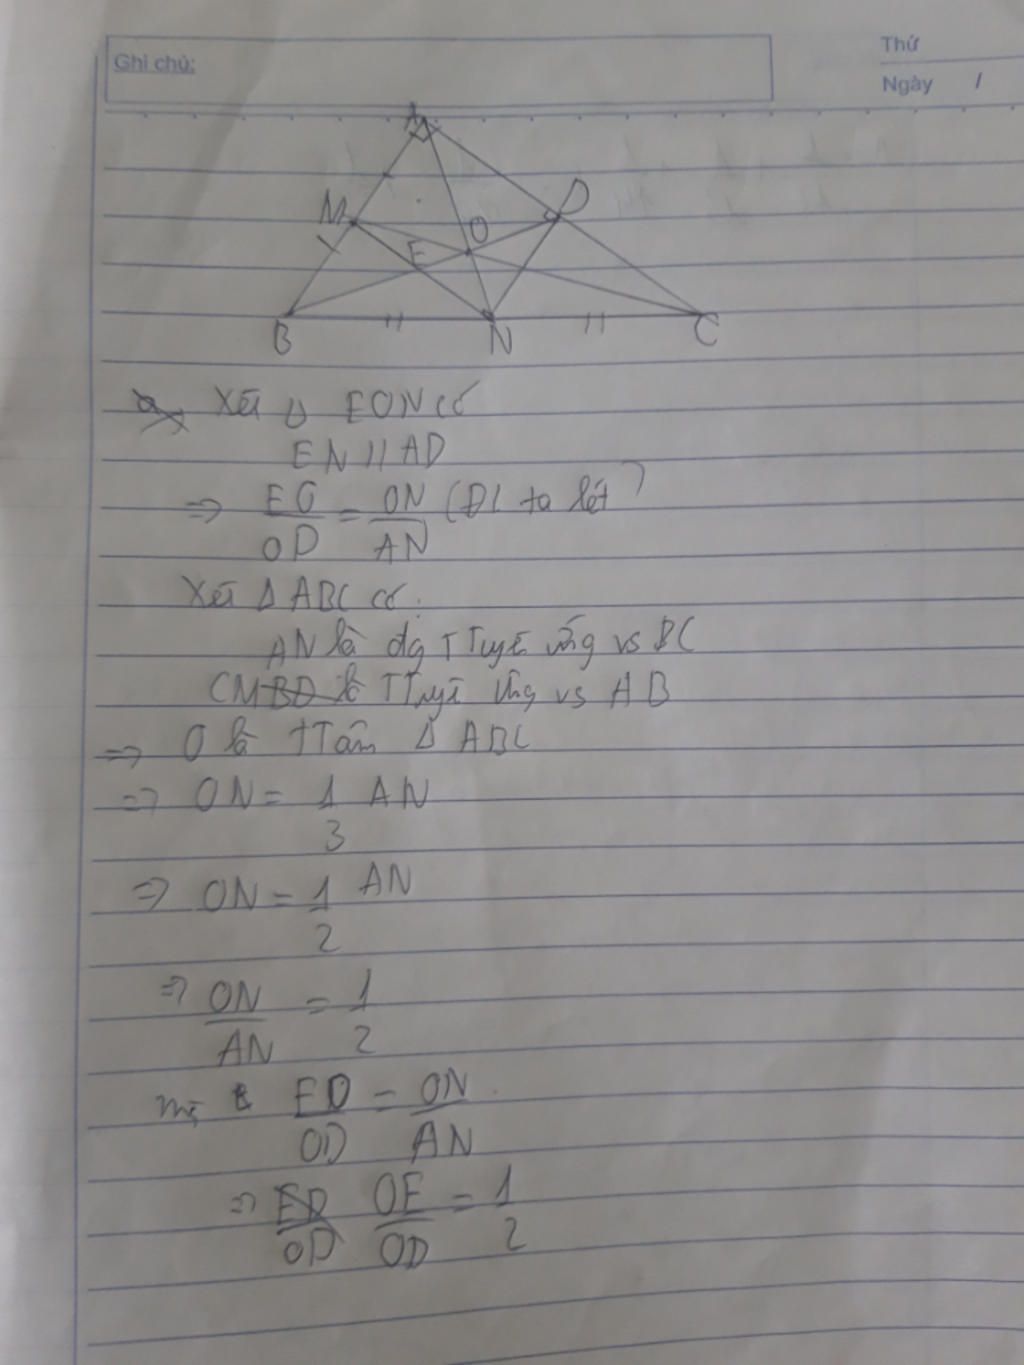 Ghi chú:
Thứ
Ngày /
A
M
D
O
E
B
N
C
a, Xét Δ EON có
EN // AD
=> EO/OD = ON/AN (ĐL ta lét)
Xét Δ ABC có:
AN là đg TTuyế ứng vs BC
CM BD là TTuyế ứng vs AB
=> O là tTâm Δ ABC
=> ON = 1/3 AN
=> ON = 1/2 AN
=> ON/AN = 1/2
mà EO/OD = ON/AN
=> ED/OD OE/OD = 1/2